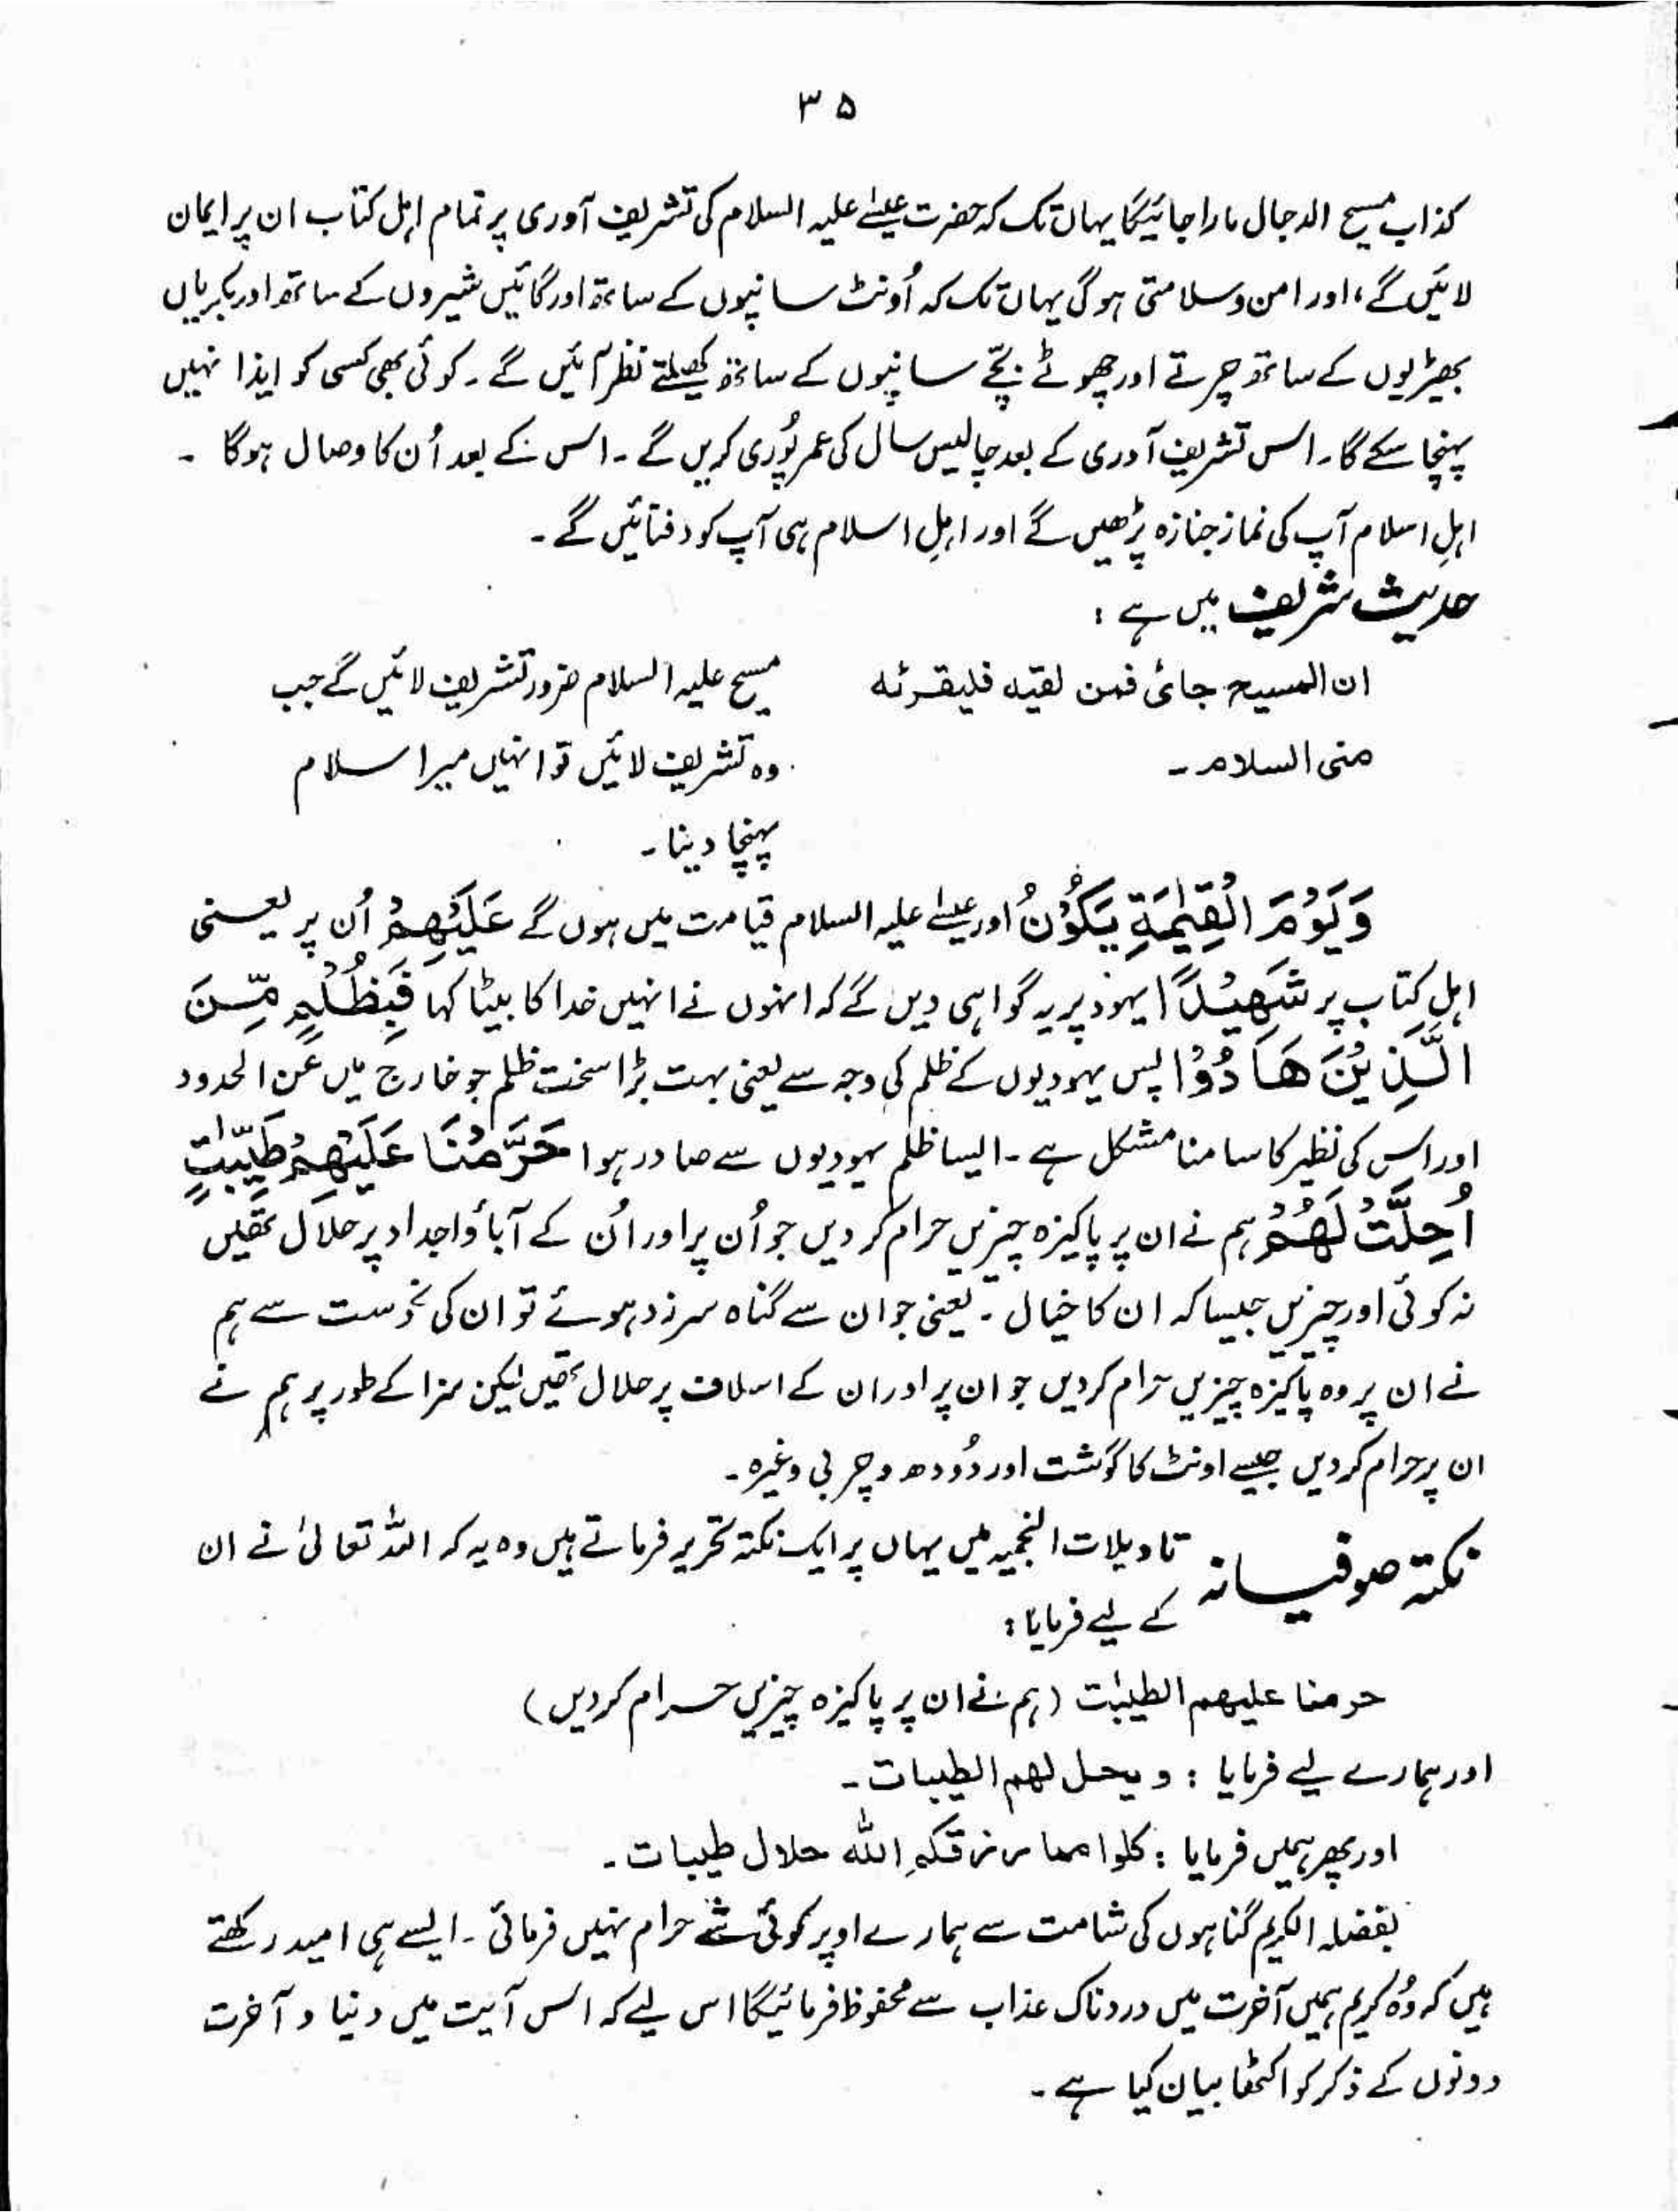 ۳۵
کذاب مسیح الدجال مارا جائیگا یہاں تک کہ حضرت عیسےٰ علیہ السلام کی تشریف آوری پر تمام اہل کتاب ان پر ایمان
لائیں گے، اور امن و سلامتی ہو گی یہاں تک کہ اُونٹ سانپوں کے ساتھ اور گائیں شیروں کے ساتھ اور بکریاں
بھیڑیوں کے ساتھ چرتے اور چھوٹے بچّے سانپوں کے ساتھ کھیلتے نظر آئیں گے۔ کوئی بھی کسی کو ایذا نہیں
پہنچا سکے گا۔ اس تشریف آوری کے بعد چالیس سال کی عمر پُوری کریں گے۔ اس کے بعد اُن کا وصال ہو گا۔
اہلِ اسلام آپ کی نماز جنازہ پڑھیں گے اور اہلِ اسلام ہی آپ کو دفنائیں گے۔
حدیث شریف میں ہے :
ان المسیح جائی فمن لقیه فلیقرئه
منی السلام۔
مسیح علیہ السلام ضرور تشریف لائیں گے جب
وہ تشریف لائیں تو انہیں میرا سلام
پہنچا دینا۔
وَیَوْمَ الْقِیٰمَةِ یَکُوْنُ اور عیسےٰ علیہ السلام قیامت میں ہوں گے عَلَیْهِمْ اُن پر یعنی
اہلِ کتاب پر شَهِیْدًا یہود پر یہ گواہی دیں گے کہ انہوں نے انہیں خدا کا بیٹا کہا فَبِظُلْمٍ مِّنَ
الَّذِیْنَ هَادُوْا پس یہودیوں کے ظلم کی وجہ سے یعنی بہت بڑا سخت ظلم جو خارج میں عن الحدود
اور اس کی نظیر کا سامنا مشکل ہے۔ ایسا ظلم یہودیوں سے صادر ہوا حَرَّمْنَا عَلَیْهِمْ طَیِّبٰتٍ
اُحِلَّتْ لَهُمْ ہم نے ان پر پاکیزہ چیزیں حرام کر دیں جو اُن پر اور اُن کے آباؤ اجداد پر حلال تھیں
نہ کوئی اور چیزیں جیسا کہ ان کا خیال۔ یعنی جو ان سے گناہ سرزد ہوئے تو ان کی نحوست سے ہم
نے ان پر وہ پاکیزہ چیزیں حرام کر دیں جو ان پر اور ان کے اسلاف پر حلال تھیں لیکن سزا کے طور پر ہم نے
ان پر حرام کر دیں جیسے اونٹ کا گوشت اور دُودھ و چربی وغیرہ۔
نکتہ صوفیانہ تاویلات النجمیہ میں یہاں پر ایک نکتہ تحریر فرماتے ہیں وہ یہ کہ اللہ تعالیٰ نے ان
کے لیے فرمایا :
حرمنا علیهم الطیبٰت (ہم نے ان پر پاکیزہ چیزیں حرام کر دیں)
اور ہمارے لیے فرمایا : و یحل لهم الطیبات۔
اور پھر ہمیں فرمایا : کلوا مما رزقکم الله حلال طیبات۔
بفضلہ الکریم گناہوں کی شامت سے ہمارے اوپر کوئی شے حرام نہیں فرمائی۔ ایسے ہی امید رکھتے
ہیں کہ وُہ کریم ہمیں آخرت میں دردناک عذاب سے محفوظ فرمائیگا اس لیے کہ اس آیت میں دنیا و آخرت
دونوں کے ذکر کو اکٹھا بیان کیا ہے۔